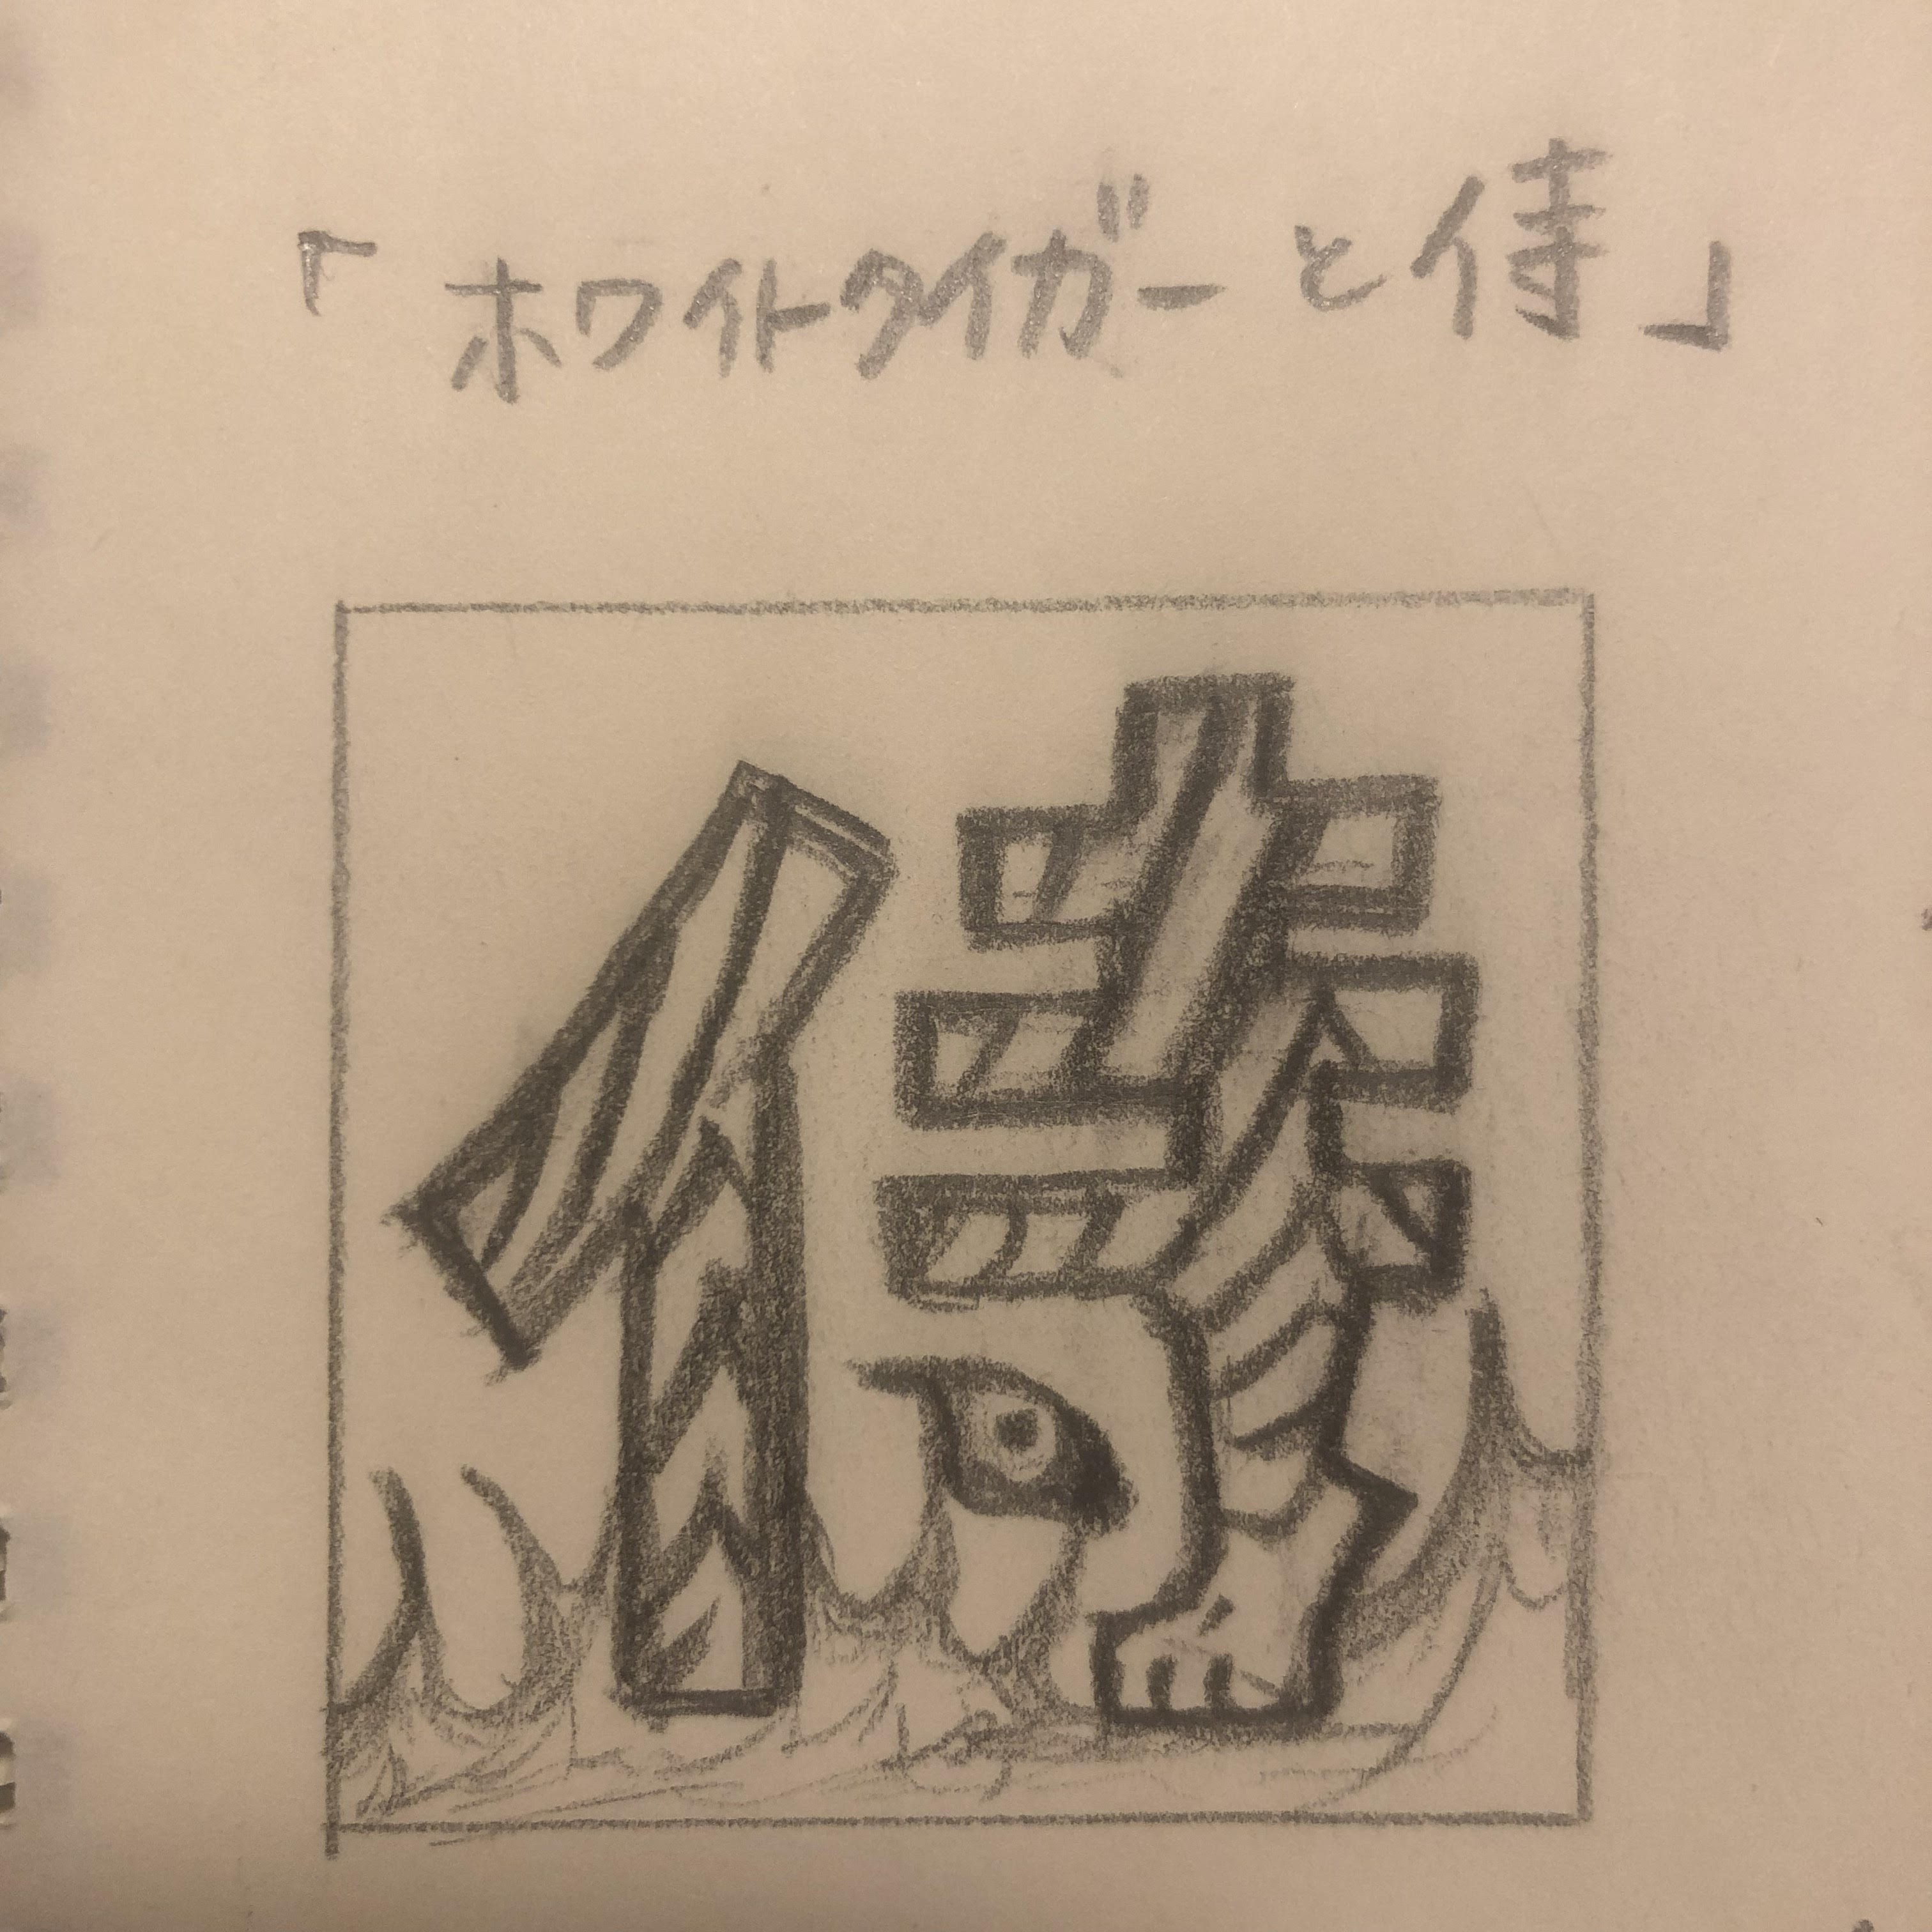 「ホワイトタイガーと侍」
侍